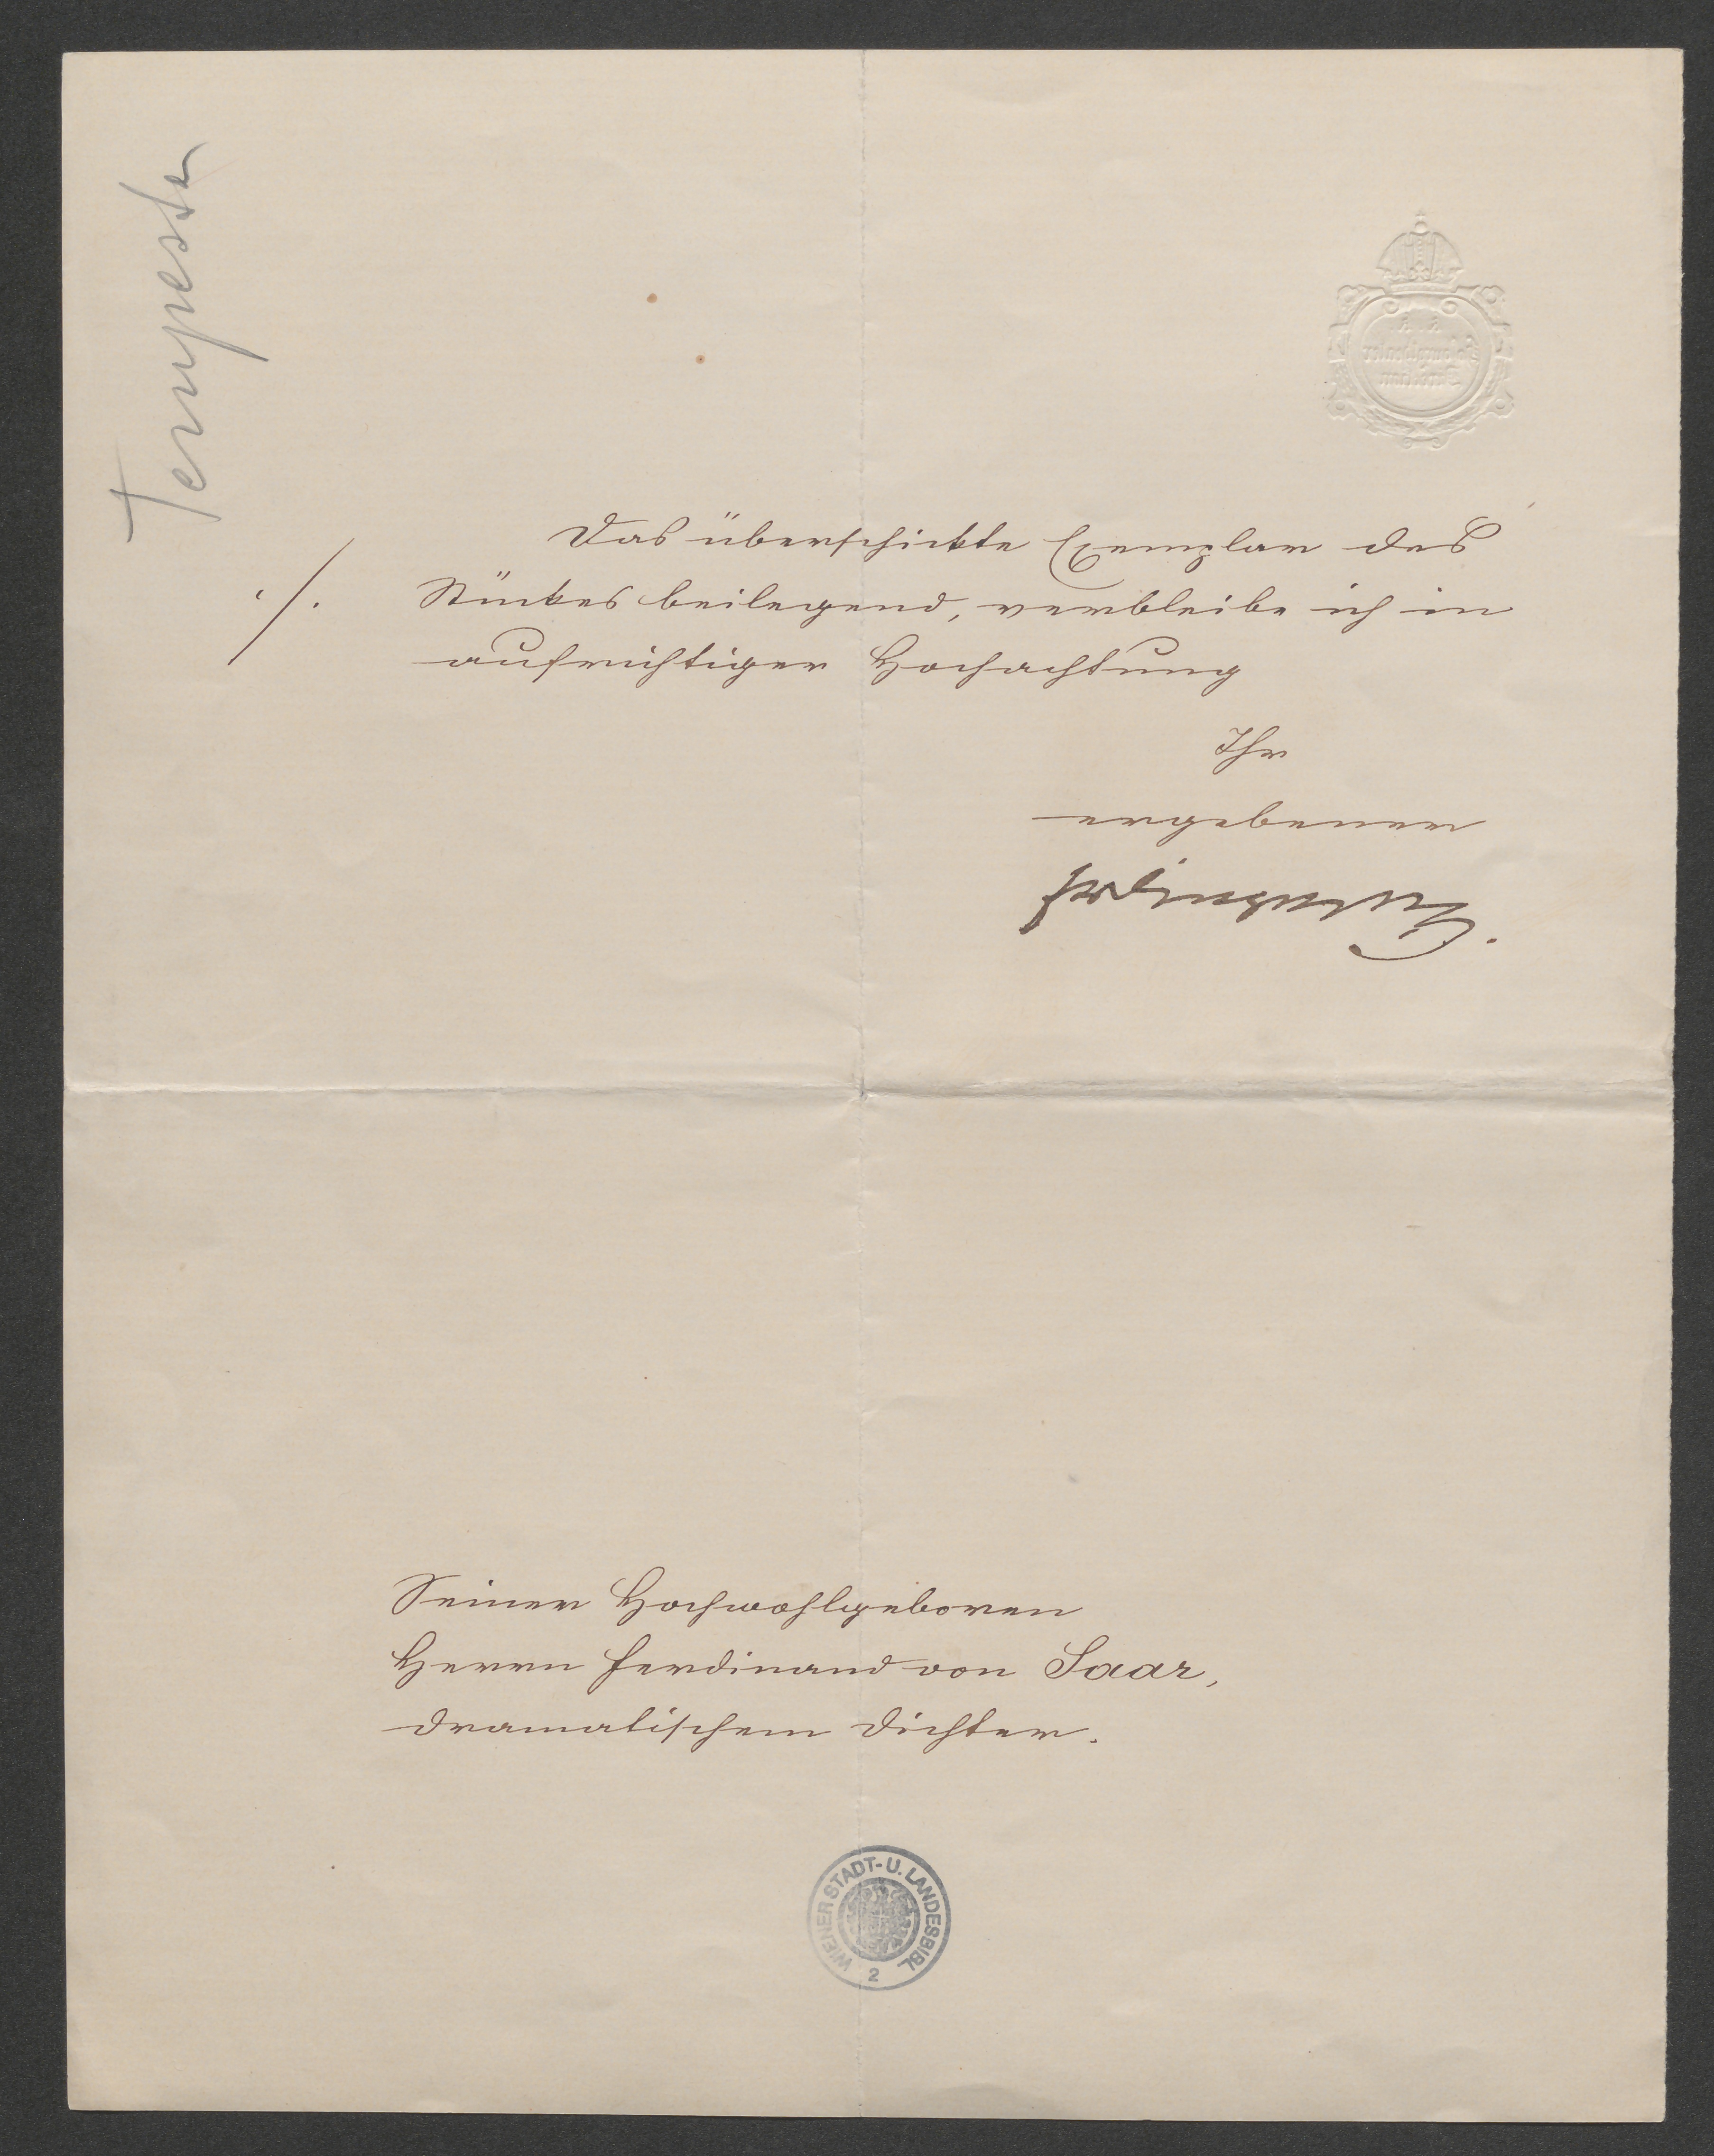 Tempesta
Das überschickte Exemplar des
./. Stückes beilegend, verbleibe ich in
aufrichtiger Hochachtung
Ihr
ergebener
Seiner Hochwohlgeboren
Herrn Ferdinand von Saar,
dramatischem Dichter.
WIENER STADT- U. LANDESBIBL.
2